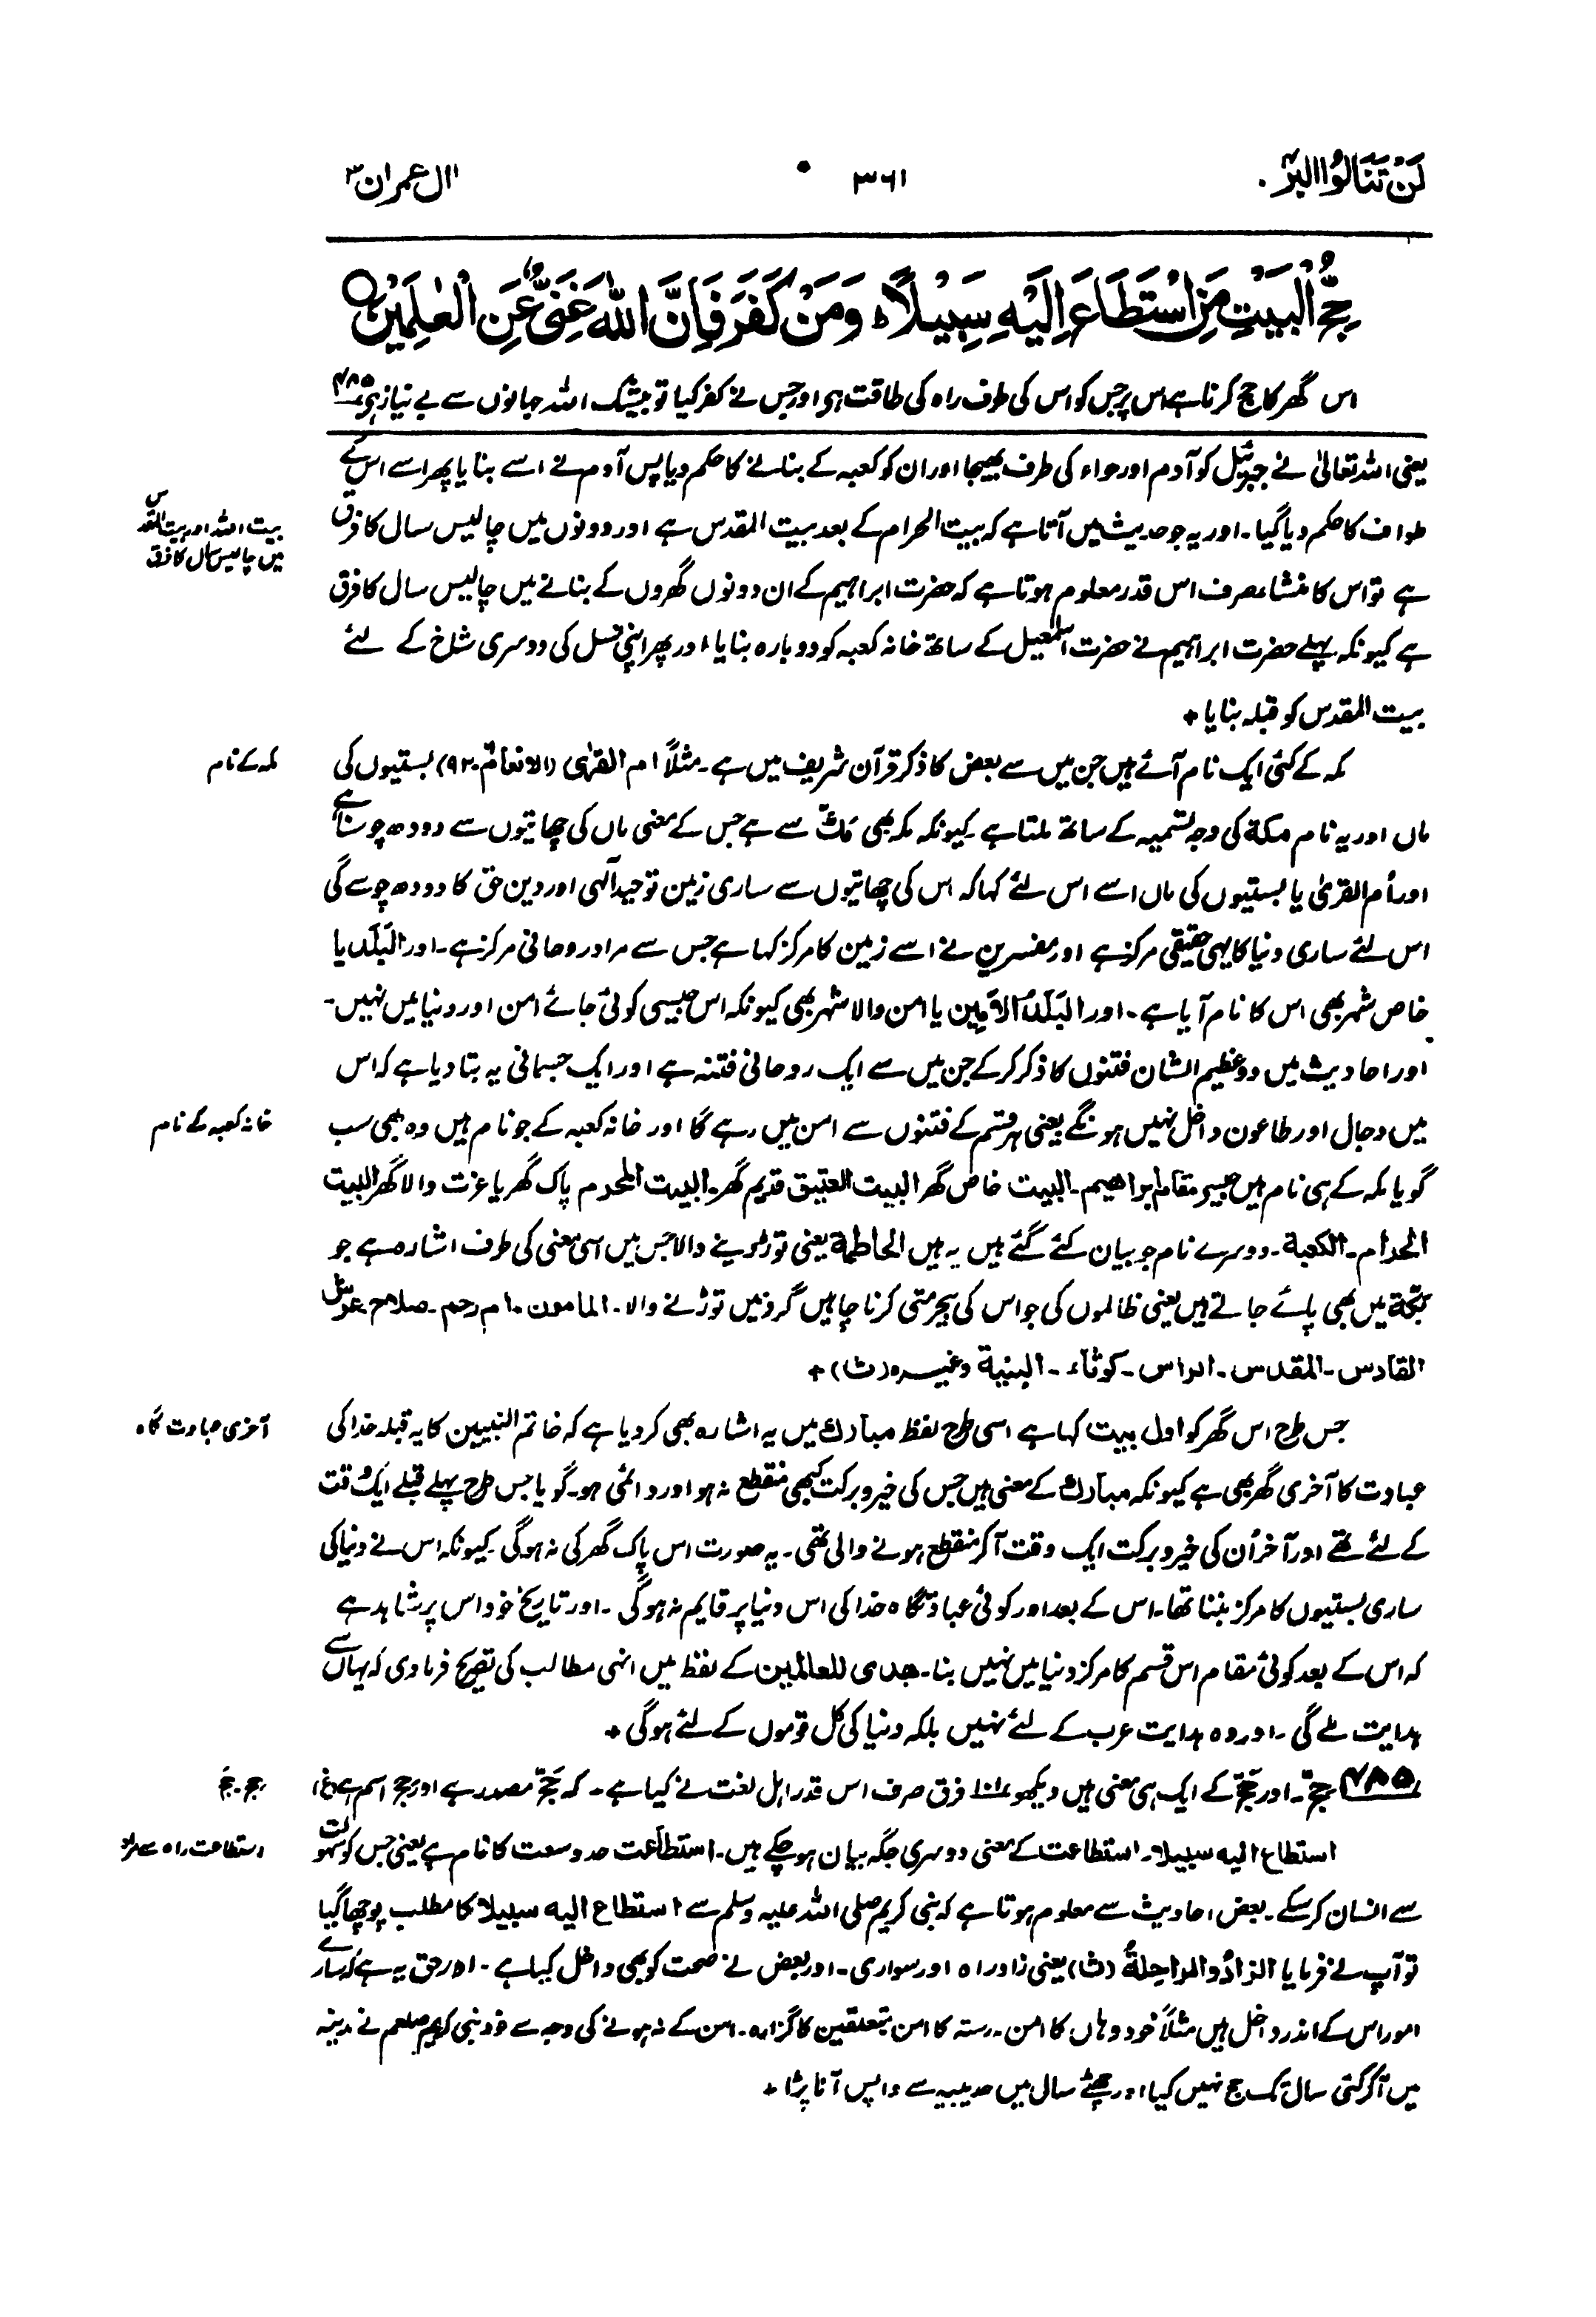 لَنْ تَنَالُوا الْبِرَّ ۴
۳۶۱
اٰل عمران ۳
حِجُّ الْبَيْتِ مَنِ اسْتَطَاعَ اِلَيْهِ سَبِيْلًا ؕ وَمَنْ كَفَرَ فَاِنَّ اللّٰهَ غَنِيٌّ عَنِ الْعٰلَمِيْنَ ○
اس گھر کا حج کرنا ہے اس پر جس کو اس کی طرف راہ کی طاقت ہو اور جس نے کفر کیا تو بیشک اللہ جہانوں سے بے نیاز ہے ۴۸۵
یعنی اللہ تعالیٰ نے جبرئیل کو آدم اور حواء کی طرف بھیجا اور ان کو کعبہ کے بنانے کا حکم دیا پس آدم نے اسے بنایا پھر اسے اس کے
طواف کا حکم دیا گیا۔ اور یہ جو حدیث میں آتا ہے کہ بیت الحرام کے بعد بیت المقدس ہے اور دونوں میں چالیس سال کا فرق
بیت اللہ اور بیت المقدس
میں چالیس سال کا فرق
ہے تو اس کا منشاء صرف اس قدر معلوم ہوتا ہے کہ حضرت ابراہیم کے ان دونوں گھروں کے بنانے میں چالیس سال کا فرق
ہے کیونکہ پہلے حضرت ابراہیم نے حضرت اسمٰعیل کے ساتھ خانہ کعبہ کو دوبارہ بنایا اور پھر اپنی نسل کی دوسری شاخ کے لئے
بیت المقدس کو قبلہ بنایا +
مکہ کے کئی ایک نام آئے ہیں جن میں سے بعض کا ذکر قرآن شریف میں ہے۔ مثلاً ام القریٰ (الانعام ۹۲) بستیوں کی
مکہ کے نام
ماں اور یہ نام مکۃ کی وجہ تسمیہ کے ساتھ ملتا ہے۔ کیونکہ مکہ بھی مَكّ سے ہے جس کے معنی ماں کی چھاتیوں سے دودھ چوسنا ہے
اور اُم القریٰ یا بستیوں کی ماں اسے اس لئے کہا کہ اس کی چھاتیوں سے ساری زمین توحید الٰہی اور دین حق کا دودھ چوسے گی
اس لئے ساری دنیا کا یہی حقیقی مرکز ہے اور مفسرین نے اسے زمین کا مرکز کہا ہے جس سے مراد روحانی مرکز ہے۔ اور البَلَد یا
خاص شہر بھی اس کا نام آیا ہے۔ اور البَلَدُ الاَمین یا امن والا شہر بھی کیونکہ اس جیسی کوئی جائے امن اور دنیا میں نہیں۔
اور احادیث میں دو عظیم الشان فتنوں کا ذکر کر کے جن میں سے ایک روحانی فتنہ ہے اور ایک جسمانی یہ بتا دیا ہے کہ اس
میں دجال اور طاعون داخل نہیں ہونگے یعنی ہر قسم کے فتنوں سے امن میں رہے گا اور خانہ کعبہ کے جو نام ہیں وہ بھی سب
خانہ کعبہ کے نام
گویا مکہ کے ہی نام ہیں جیسے مقام ابراھیم۔ البیت خاص گھر البیت العتیق قدیم گھر۔ البیت المحرم پاک گھر یا عزت والا گھر البیت
الحرام۔ الکعبة۔ دوسرے نام جو بیان کئے گئے ہیں یہ ہیں الحاطمة یعنی توڑ دینے والا جس میں اسی معنی کی طرف اشارہ ہے جو
بکّة میں بھی پائے جاتے ہیں یعنی ظالموں کی جو اس کی بیحرمتی کرنا چاہیں گردنیں توڑنے والا۔ المامون۔ ام رحم۔ صلاح۔ عرش
القادس۔ المقدس۔ الراس۔ کوثاء۔ البنیة وغیرہ (ث) +
جس طرح اس گھر کو اول بیت کہا ہے اسی طرح لفظ مبارك میں یہ اشارہ بھی کر دیا ہے کہ خاتم النبیین کا یہ قبلہ خدا کی
آخری عبادت گاہ
عبادت کا آخری گھر بھی ہے کیونکہ مبارك کے معنی ہیں جس کی خیر و برکت کبھی منقطع نہ ہو اور دائمی ہو۔ گویا جس طرح پہلے قبلے ایک وقت
کے لئے تھے اور آخر اُن کی خیر و برکت ایک وقت آ کر منقطع ہونے والی تھی۔ یہ صورت اس پاک گھر کی نہ ہوگی۔ کیونکہ اس نے دنیا کی
ساری بستیوں کا مرکز بننا تھا۔ اس کے بعد اور کوئی عبادتگاہ خدا کی اس دنیا پر قایم نہ ہوگی۔ اور تاریخ خود اس پر شاہد ہے
کہ اس کے بعد کوئی مقام اس قسم کا مرکز دنیا میں نہیں بنا۔ ھدی للعالمین کے لفظ میں انہی مطالب کی تصریح فرما دی کہ یہاں سے
ہدایت ملے گی۔ اور وہ ہدایت عرب کے لئے نہیں بلکہ دنیا کی کل قوموں کے لئے ہوگی +
۴۸۵ حِجّ۔ اور حَجّ کے ایک ہی معنی ہیں دیکھو فرق صرف اس قدر اہل لغت نے کیا ہے۔ کہ حَجّ مصدر ہے اور حِج اسم ہے (غ)
حِج۔ حَج
استطاع الیه سبیلا۔ استطاعت کے معنی دوسری جگہ بیان ہو چکے ہیں۔ استطاعت حد وسعت کا نام ہے یعنی جس کو سہولت
استطاعت راہ سے مراد
سے انسان کر سکے۔ بعض احادیث سے معلوم ہوتا ہے کہ نبی کریم صلی اللہ علیہ وسلم سے استطاع الیه سبیلا کا مطلب پوچھا گیا
تو آپ نے فرمایا الزادُ والراحِلةُ (ث) یعنی زاد راہ اور سواری۔ اور بعض نے صحت کو بھی داخل کیا ہے۔ اور حق یہ ہے کہ سارے
امور اس کے اندر داخل ہیں مثلاً خود وہاں کا امن۔ رستہ کا امن متعلقین کا گزارہ۔ امن کے نہ ہونے کی وجہ سے خود نبی کریم صلعم نے مدینہ
میں آ کر کئی سال تک حج نہیں کیا اور چھٹے سال میں حدیبیہ سے واپس آنا پڑا +